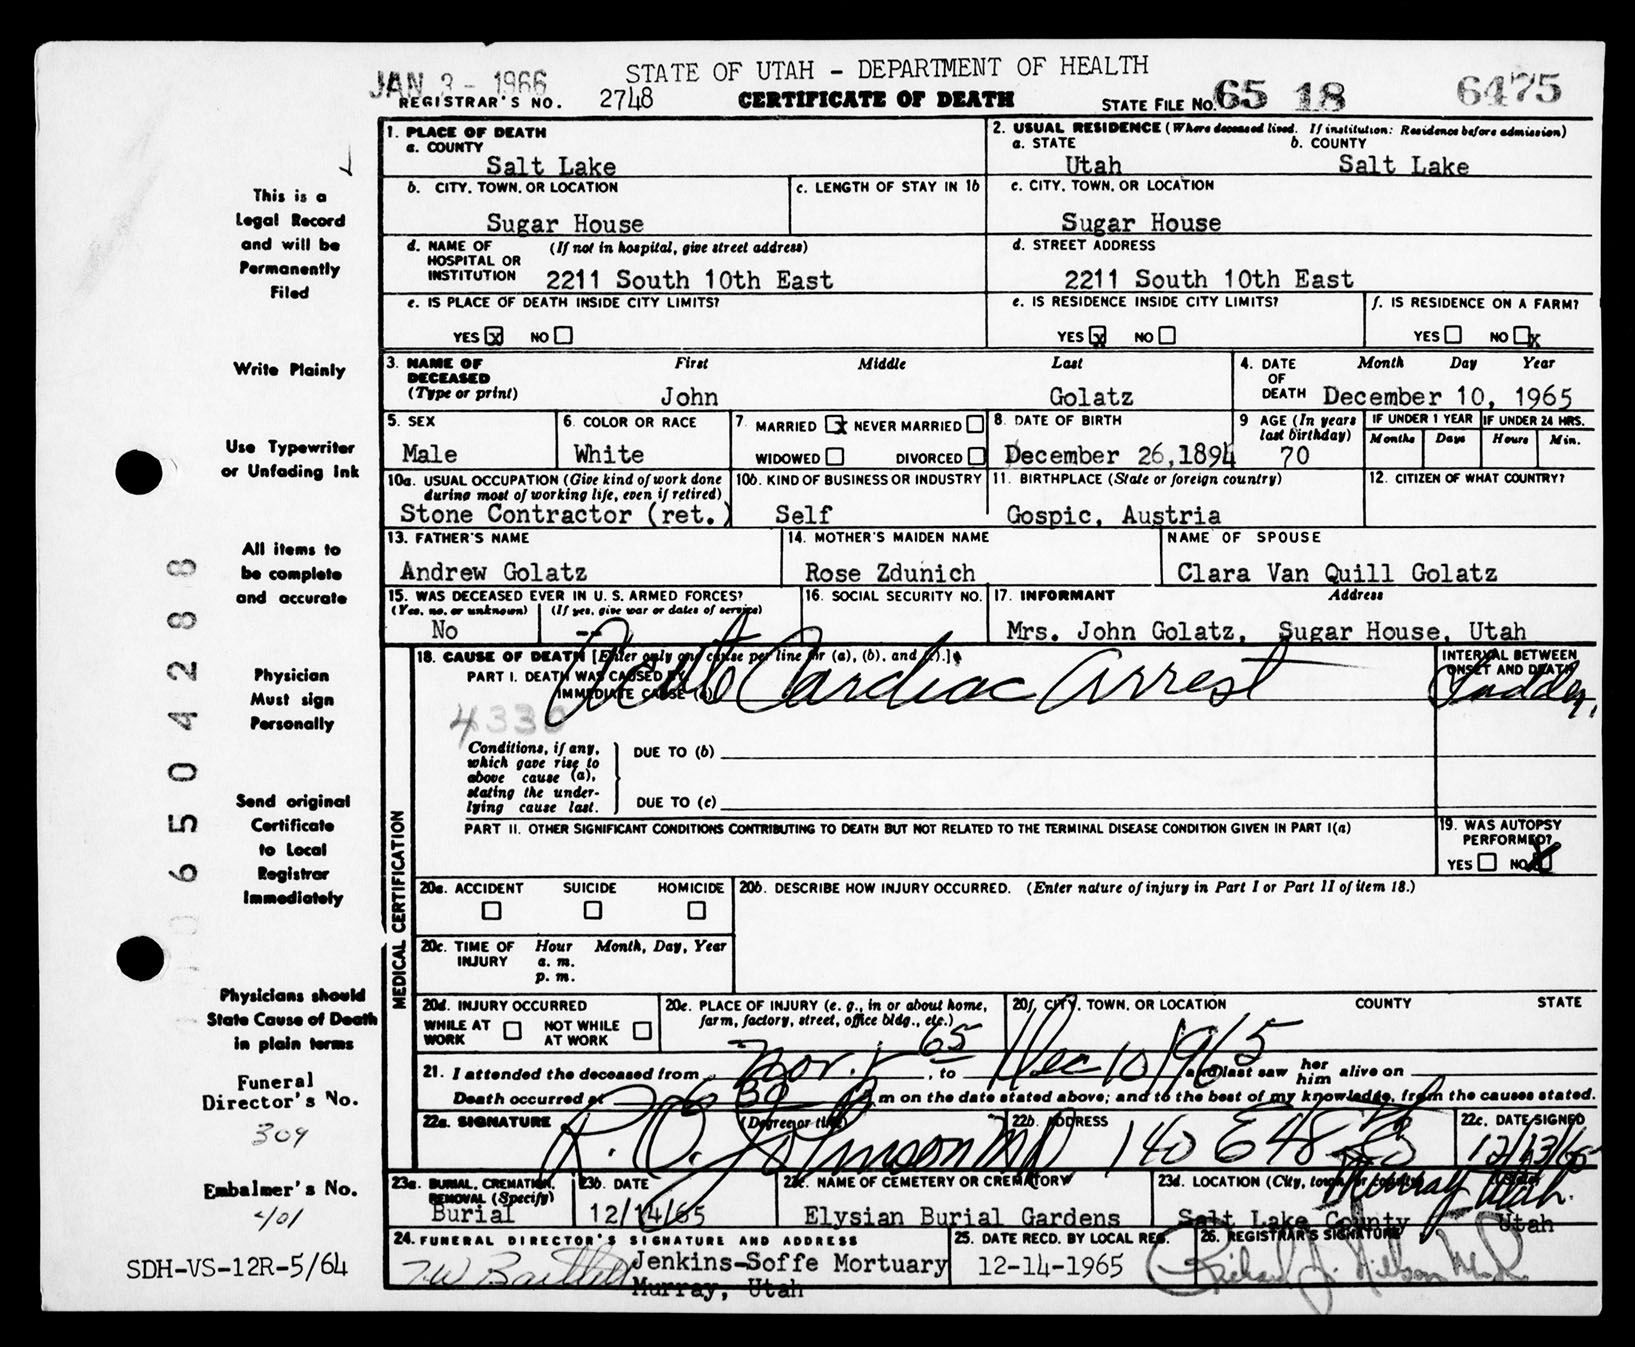 JAN 3 - 1966
STATE OF UTAH - DEPARTMENT OF HEALTH
REGISTRAR'S NO. 2748 CERTIFICATE OF DEATH STATE FILE NO. 65 18 6475
This is a
Legal Record
and will be
Permanently
Filed
Write Plainly
Use Typewriter
or Unfading Ink
All items to
be complete
and accurate
Physician
Must sign
Personally
Send original
Certificate
to Local
Registrar
Immediately
Physicians should
State Cause of Death
in plain terms
Funeral
Director's No.
309
Embalmer's No.
401
SDH-VS-12R-5/64
6504288
1. PLACE OF DEATH
a. COUNTY
Salt Lake
2. USUAL RESIDENCE (Where deceased lived. If institution: Residence before admission)
a. STATE b. COUNTY
Utah Salt Lake
b. CITY, TOWN, OR LOCATION
Sugar House
c. LENGTH OF STAY IN 1b
c. CITY, TOWN, OR LOCATION
Sugar House
d. NAME OF (If not in hospital, give street address)
HOSPITAL OR
INSTITUTION 2211 South 10th East
d. STREET ADDRESS
2211 South 10th East
e. IS PLACE OF DEATH INSIDE CITY LIMITS?
YES x NO
e. IS RESIDENCE INSIDE CITY LIMITS?
YES x NO
f. IS RESIDENCE ON A FARM?
YES NO x
3. NAME OF First Middle Last
DECEASED
(Type or print) John Golatz
4. DATE Month Day Year
OF
DEATH December 10, 1965
5. SEX
Male
6. COLOR OR RACE
White
7. MARRIED x NEVER MARRIED
WIDOWED DIVORCED
8. DATE OF BIRTH
December 26,1894
9 AGE (In years
last birthday)
70
IF UNDER 1 YEAR IF UNDER 24 HRS.
Months Days Hours Min.
10a. USUAL OCCUPATION (Give kind of work done
during most of working life, even if retired)
Stone Contractor (ret.)
10b. KIND OF BUSINESS OR INDUSTRY
Self
11. BIRTHPLACE (State or foreign country)
Gospic, Austria
12. CITIZEN OF WHAT COUNTRY?
13. FATHER'S NAME
Andrew Golatz
14. MOTHER'S MAIDEN NAME
Rose Zdunich
NAME OF SPOUSE
Clara Van Quill Golatz
15. WAS DECEASED EVER IN U. S. ARMED FORCES?
(Yes, no, or unknown) (If yes, give war or dates of service)
No --
16. SOCIAL SECURITY NO.
17. INFORMANT Address
Mrs. John Golatz, Sugar House, Utah
MEDICAL CERTIFICATION
18. CAUSE OF DEATH [Enter only one cause per line for (a), (b), and (c).]
PART I. DEATH WAS CAUSED BY
IMMEDIATE CAUSE (a) Acute Cardiac Arrest
INTERVAL BETWEEN
ONSET AND DEATH
4330
Conditions, if any,
which gave rise to
above cause (a),
stating the under-
lying cause last.
DUE TO (b)
DUE TO (c)
PART II. OTHER SIGNIFICANT CONDITIONS CONTRIBUTING TO DEATH BUT NOT RELATED TO THE TERMINAL DISEASE CONDITION GIVEN IN PART I(a)
19. WAS AUTOPSY
PERFORMED?
YES NO X
20a. ACCIDENT SUICIDE HOMICIDE
20b. DESCRIBE HOW INJURY OCCURRED. (Enter nature of injury in Part I or Part II of item 18.)
20c. TIME OF Hour Month, Day, Year
INJURY a. m.
p. m.
20d. INJURY OCCURRED
WHILE AT WORK NOT WHILE AT WORK
20e. PLACE OF INJURY (e. g., in or about home,
farm, factory, street, office bldg., etc.)
20f. CITY, TOWN, OR LOCATION COUNTY STATE
21. I attended the deceased from Nov. 1 65, to Dec 10 1965 and last saw her him alive on
Death occurred at m on the date stated above; and to the best of my knowledge, from the causes stated.
22a. SIGNATURE (Degree or title)
R. O. Johnson MD
22b. ADDRESS
140 E 48 So
Murray Utah.
22c. DATE SIGNED
12/13/65
23a. BURIAL, CREMATION,
REMOVAL (Specify)
Burial
23b. DATE
12/14/65
23c. NAME OF CEMETERY OR CREMATORY
Elysian Burial Gardens
23d. LOCATION (City, town, or county)
Salt Lake County Utah
24. FUNERAL DIRECTOR'S SIGNATURE AND ADDRESS
Jenkins-Soffe Mortuary
Murray, Utah
25. DATE RECD. BY LOCAL REG.
12-14-1965
26. REGISTRAR'S SIGNATURE